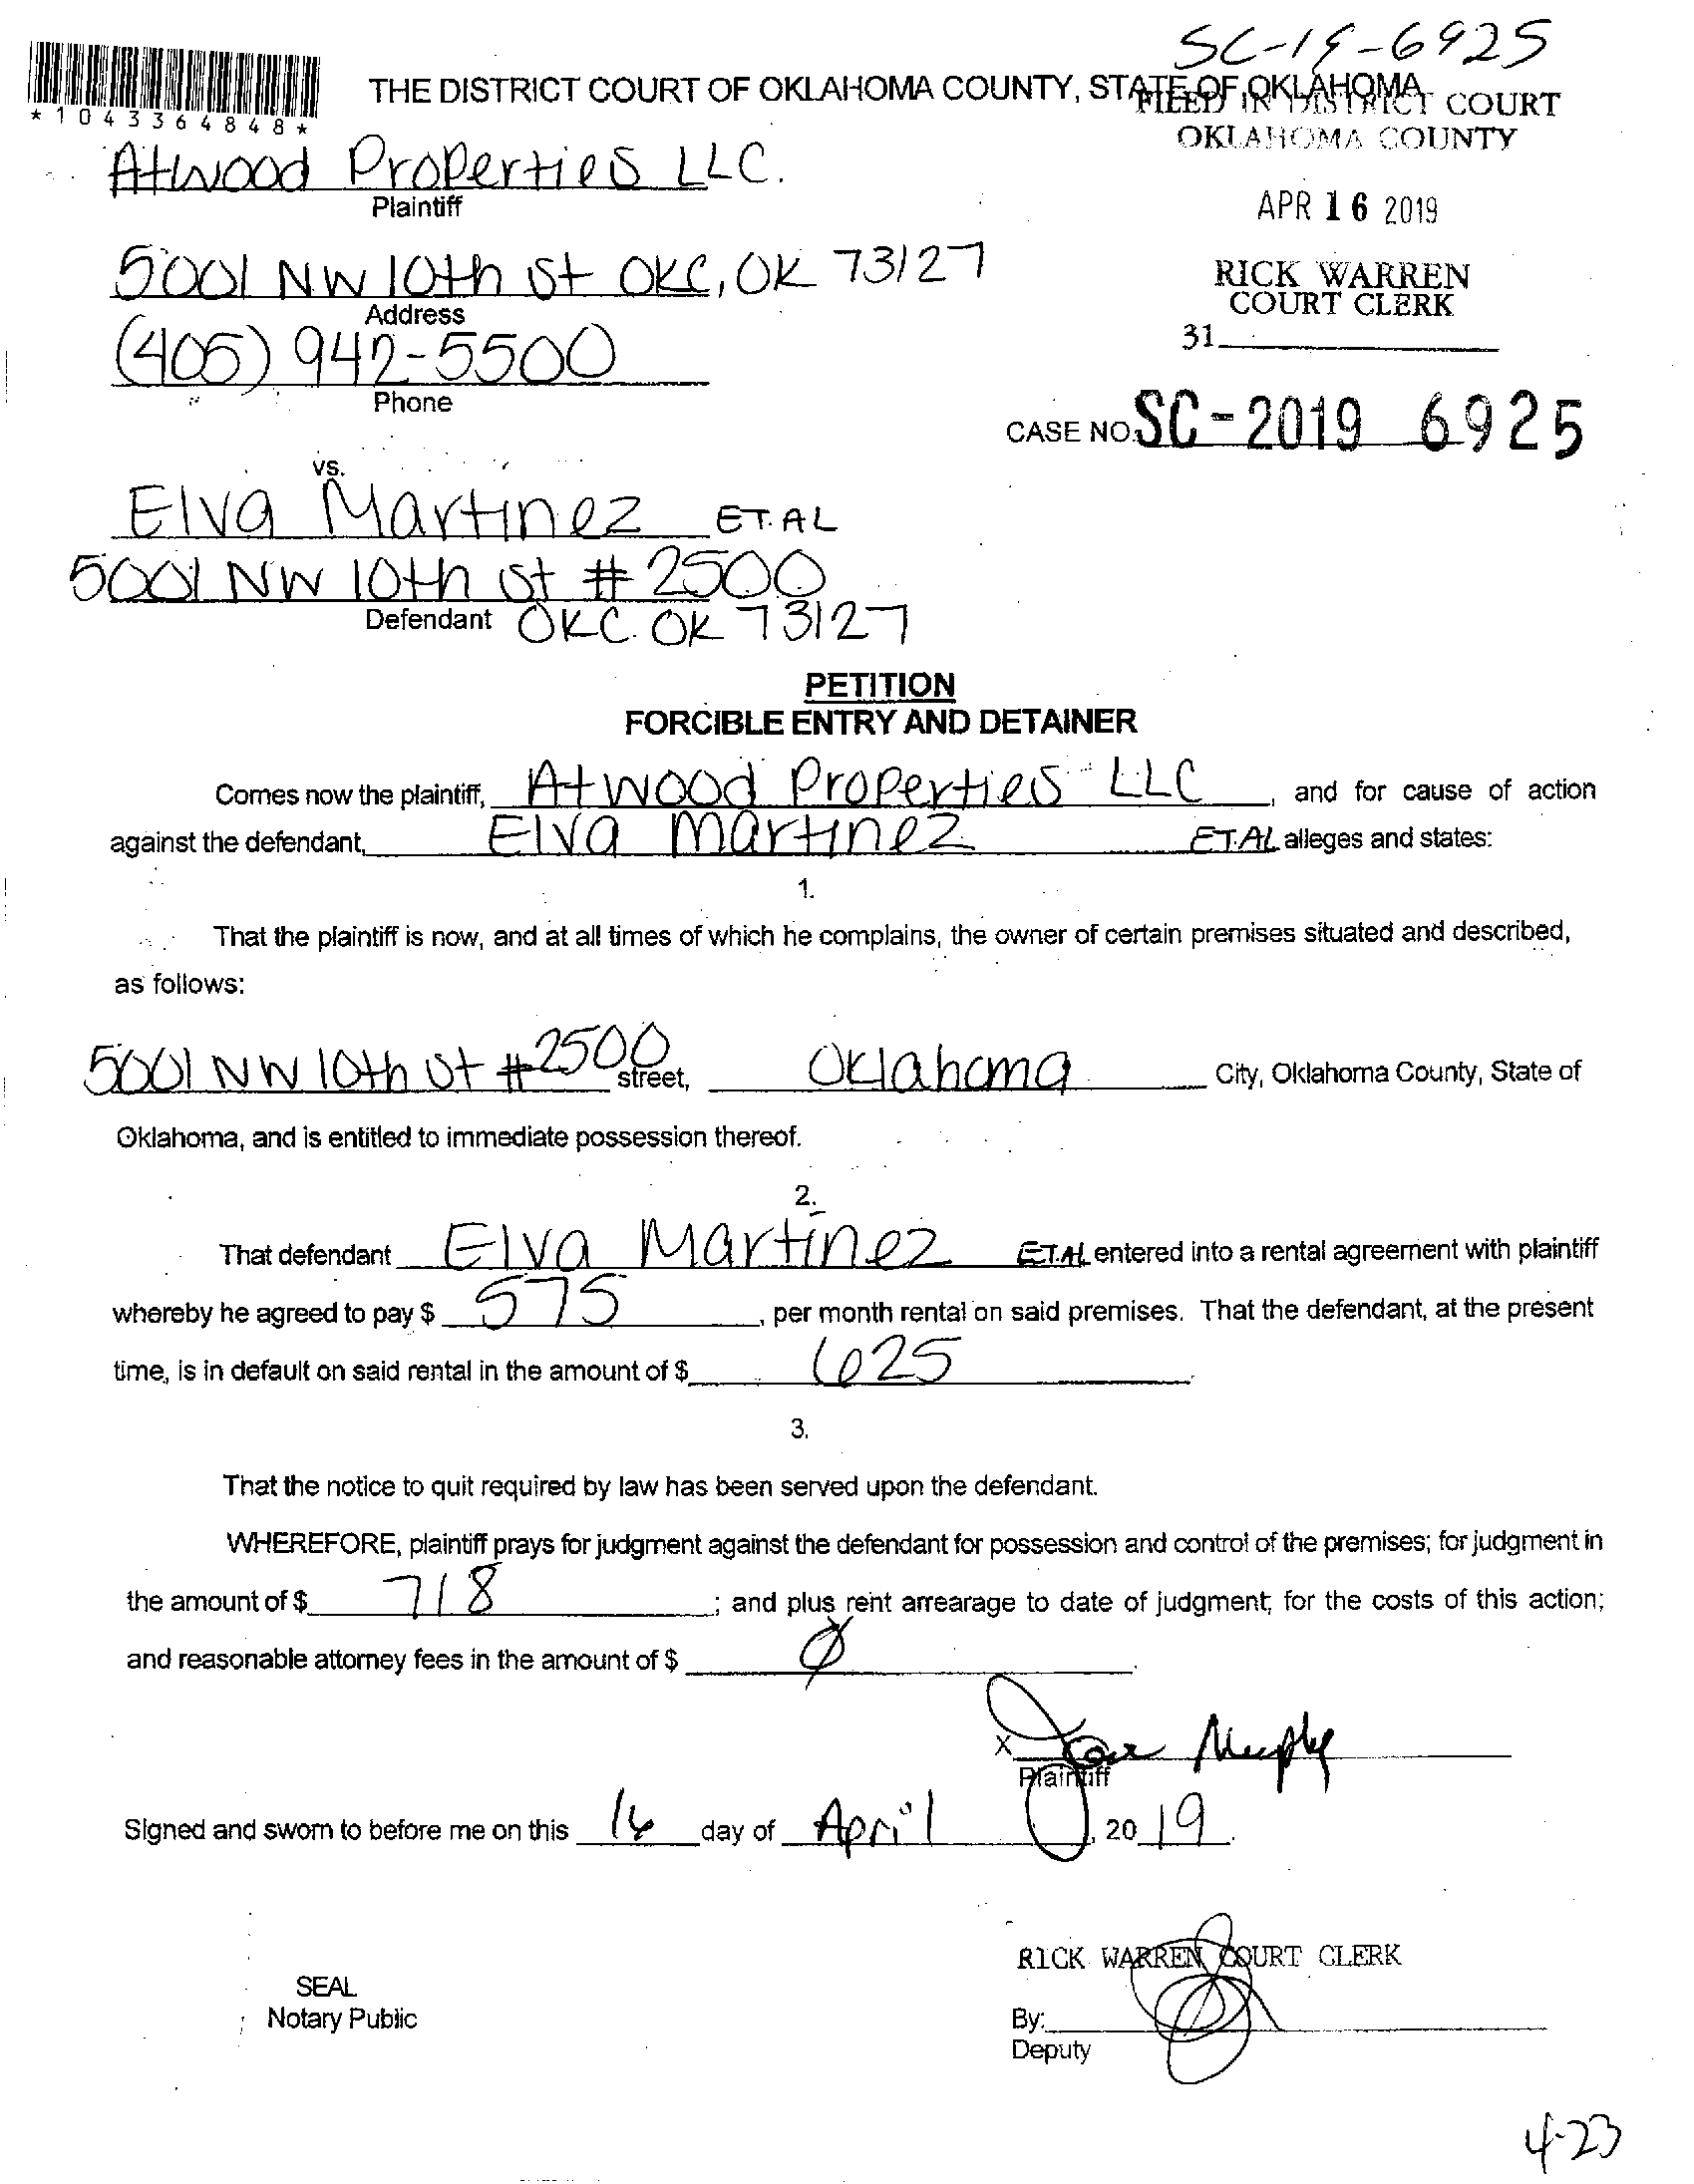 SC-19-6925
THE DISTRICT COURT OF OKLAHOMA COUNTY, STATE OF OKLAHOMA
FILED IN DISTRICT COURT
OKLAHOMA COUNTY
*1043364848*
Atwood Properties LLC.
Plaintiff
APR 16 2019
5001 NW 10th St OKC, OK 73127
Address
RICK WARREN
COURT CLERK
31
(405) 942-5500
Phone
CASE NO. SC-2019 6925
vs.
Elva Martinez ET. AL
5001 NW 10th St # 2500
Defendant OKC. OK 73127
PETITION
FORCIBLE ENTRY AND DETAINER
Comes now the plaintiff, Atwood Properties LLC, and for cause of action
against the defendant, Elva Martinez ET.AL alleges and states:
1.
That the plaintiff is now, and at all times of which he complains, the owner of certain premises situated and described,
as follows:
5001 NW 10th St #2500 street, Oklahoma City, Oklahoma County, State of
Oklahoma, and is entitled to immediate possession thereof.
2.
That defendant Elva Martinez ET.AL entered into a rental agreement with plaintiff
whereby he agreed to pay $ 575, per month rental on said premises. That the defendant, at the present
time, is in default on said rental in the amount of $ 625.
3.
That the notice to quit required by law has been served upon the defendant.
WHEREFORE, plaintiff prays for judgment against the defendant for possession and control of the premises; for judgment in
the amount of $ 718; and plus rent arrearage to date of judgment; for the costs of this action;
and reasonable attorney fees in the amount of $ Ø.
X Murphy
Plaintiff
Signed and sworn to before me on this 16 day of April, 2019.
RICK WARREN COURT CLERK
SEAL
Notary Public
By:
Deputy
4-23